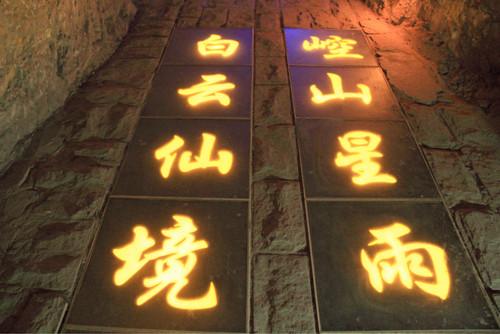 崆山星雨
白云仙境